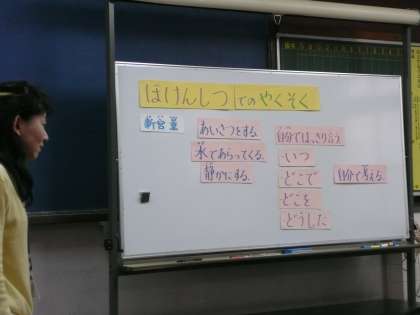 ほけんしつでのやくそく
あいさつをする。
水であらってくる。
静かにする。
自分ではっきり言う
いつ
どこで
どこを
どうした
自分で考える。